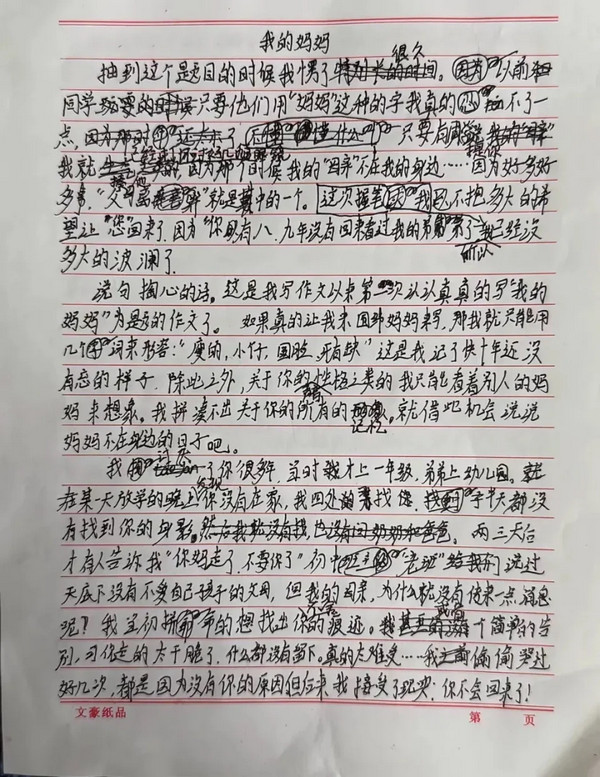 我的妈妈
抽到这个是题目的时候我愣了很久。因为以前
同学只要他们用“妈妈”这种的字我真的忍不了一
点，因为那时 只要有同学
我就 因为那个时候我的“回穽”不在我的身边……因为好多好
多事，“父母离”就是其中的一个。这次 我已不把多大的希
望让“您”回来了，因为“你”已有八、九年没有回来看过我的弟弟了，所以我已经没
多大的波澜了。
说句掏心的话。这是我写作文以来第一次认认真真的写“我的
妈妈”为题的作文了。如果真的让我来 妈妈来写，那我就只能用
几个词来形容：“瘦的，小仔、圆脸、牙有缺”这是我记了快十年还没
有忘的样子。除此之外，关于你的性格之类的我只能看着别人的妈
妈来想象。我拼凑不出关于你的所有的记忆。就借此机会说说
妈妈不在身边的日子吧。
我 了你很多年，当时我才上一年级，弟弟上幼儿园。就
在某一天放学的晚上发现你没有在家，我四处的寻找你，找了半天都没
有找到你的身影。然后我就没有找，也没有问奶奶和爸爸。两三天后
才有人告诉我“你妈走了，不要你了”初中 “老班”给我们说过
天底下没有不爱自己孩子的父母，但我的回来，为什么就没有传来一点消息
呢？我至初 的想找出你的痕迹。我 个简单的告
别，可你走的太干脆了，什么都没有留下。真的太难受……我 偷偷哭过
好几次，都是因为没有你的原因但后来我接受了现实：你不会回来了！
文豪纸品
第 页